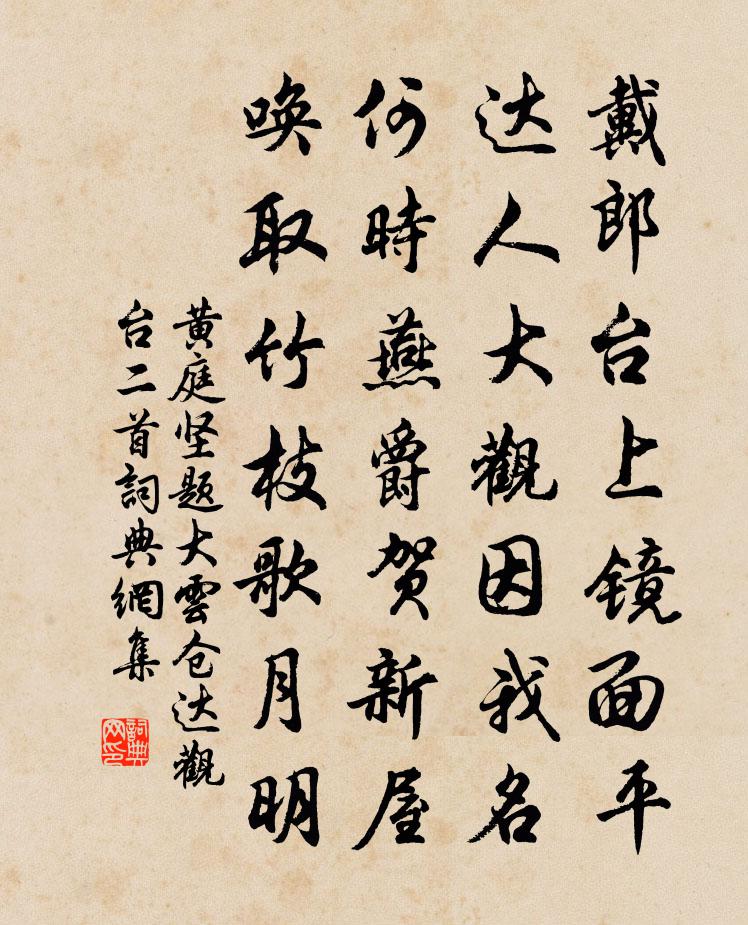 戴郎台上镜面平
达人大觀因我名
何時燕爵贺新屋
唤取竹枝歌月明
黄庭坚题大雲仓达觀
台二首詞典網集
詞典网印